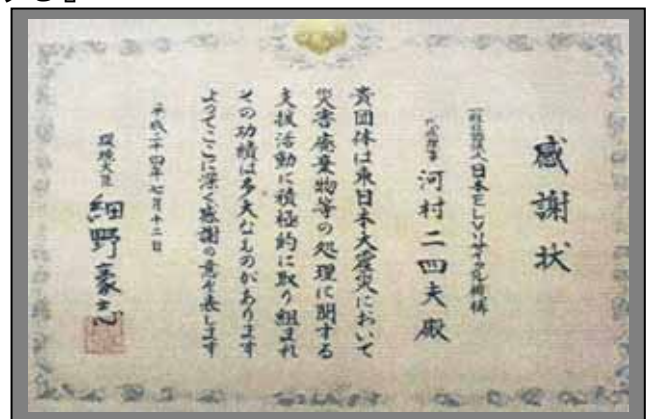 感謝状
一般社団法人日本ELVリサイクル機構
代表理事 河村二四夫殿
貴団体は東日本大震災において
災害廃棄物等の処理に関する
支援活動に積極的に取り組まれ
その功績は多大なものがあります
よってここに深く感謝の意を表します
平成二十四年七月十二日
環境大臣 細野豪志